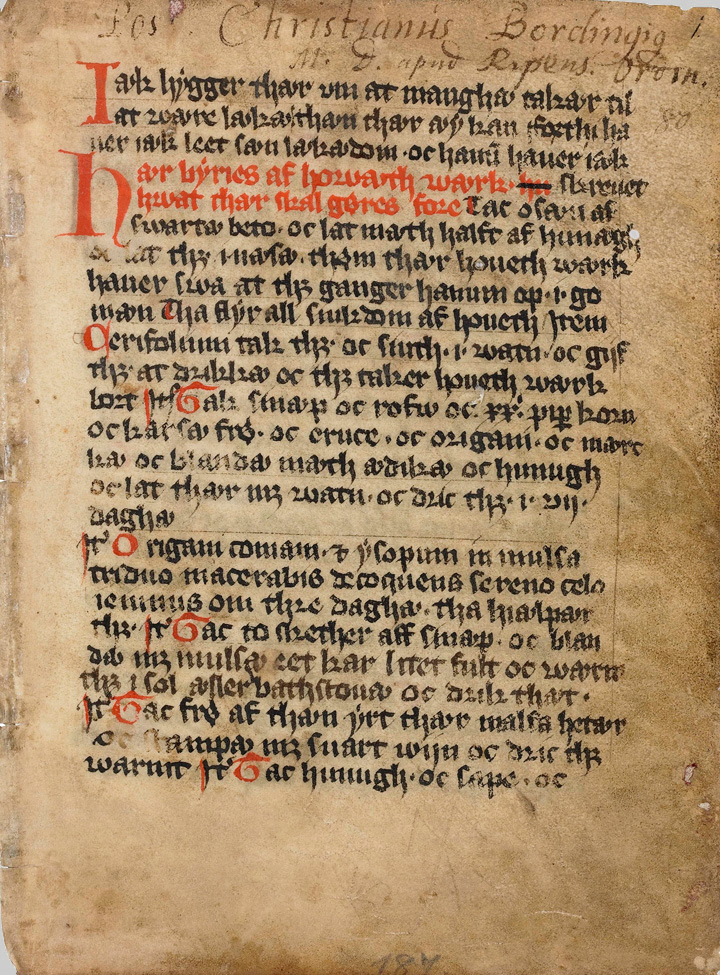 Pos Christianus Bordingig 1
M. D. apud Ripens. Ordin.
80
Iak hygger thær um at mangha takær til
at wære lækæ than thær æy kan forthi ha
uer iak leet sæn lækædom · oc hanū hauer iak
skreuet
hær byries af howæth wærk ·
hwat thær skal gøres fore Tac osæn af
swarta beto · oc lat mæth halft af hunægh
oc lat thz i næsæ · them thær houeth wærk
hauer swa at thz ganger hanum op · i · go
man Tha flyr all siukdom af houeth Item
Cerifolium tak thz · oc siuth · i · watn · oc gif
thz at drikka oc thz taker houeth wærk
bort Itē Tak sinap oc rosæ oc xx · pip korn
oc karsæ frø · oc eruce · oc origani · oc mærc
kæ oc blandæ mæth ædikæ oc hunugh
oc lat thær mz watn · oc dric thz · i · vii ·
daghæ
Itē Origani comam · ⁊ ysopum in mulsa
triduo macerabis decoquens sereno celo
ieiunus om thre daghæ · tha hiælpær
thz · Itē Tac to skether aff sinap · oc blan
dæ mz mulsæ eet kar litet fult oc wærm
thz i sol æller bathstouæ oc drik thæt ·
Itē Tac frø af then yrt thær malfa hetær
oc stampæ mz suart wijn oc dric thz
warmt Itē Tac hunugh · oc sape · oc